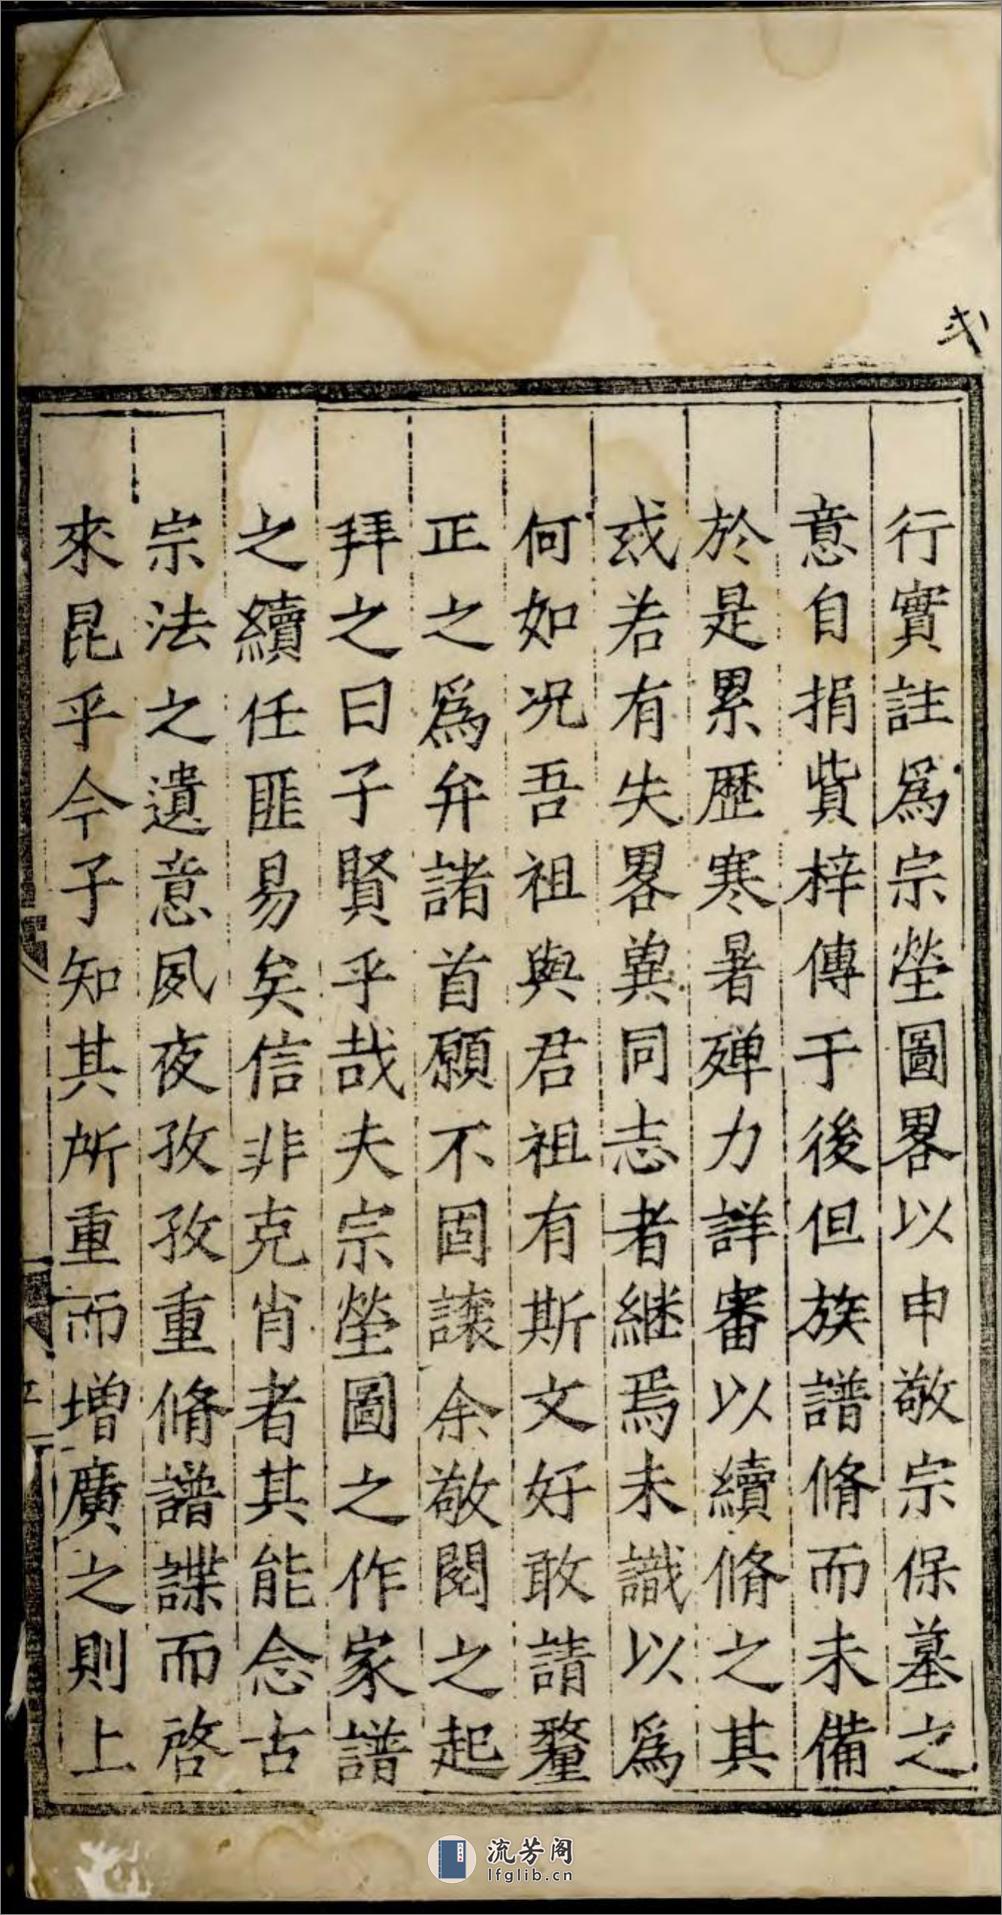 行實註爲宗塋圖畧以申敬宗保墓之
意自捐貲梓傳于後但族譜脩而未備
於是累歷寒暑殫力詳審以續脩之其
或若有失畧兾同志者継焉未識以爲
何如况吾祖與君祖有斯文好敢請釐
正之爲弁諸首願不固讓余敬閱之起
拜之曰子賢乎哉夫宗塋圖之作家譜
之續任匪易矣信非克肖者其能念古
宗法之遺意夙夜孜孜重脩譜諜而啓
來昆乎今子知其所重而增廣之則上
流芳阁
lfglib.cn